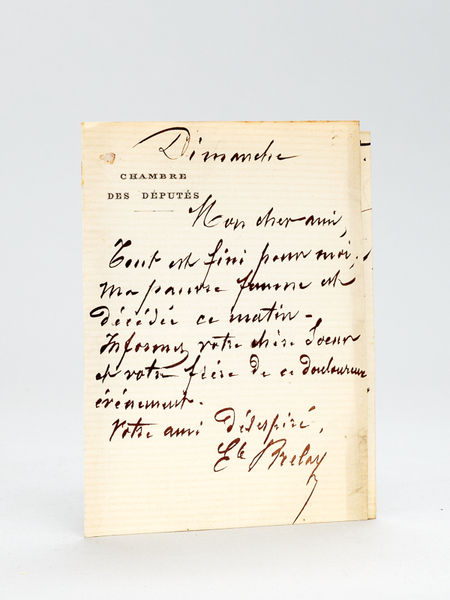 Dimanche
CHAMBRE
DES DÉPUTÉS
Mon cher ami,
Tout est fini pour moi,
ma pauvre femme est
décédée ce matin -
Informez votre chère Soeur
et votre frère de ce douloureux
événement.
Votre ami désespéré,
Ele Brelay